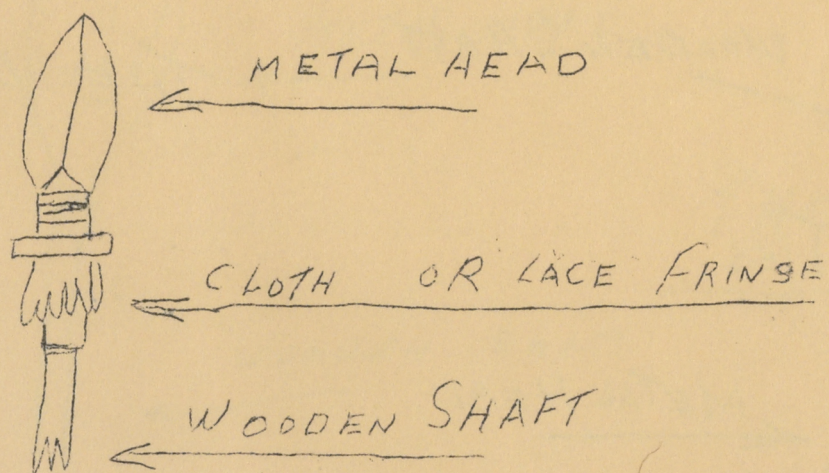 METAL HEAD
CLOTH OR LACE FRINGE
WOODEN SHAFT